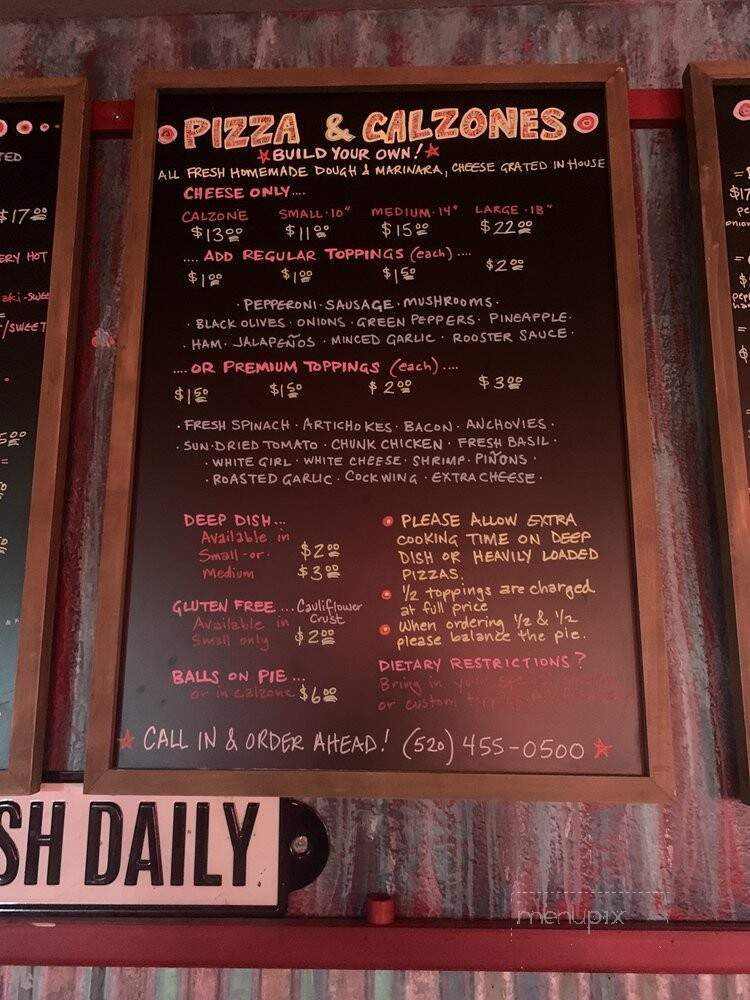 PIZZA & CALZONES
BUILD YOUR OWN!
ALL FRESH HOMEMADE DOUGH & MARINARA, CHEESE GRATED IN HOUSE
CHEESE ONLY....
CALZONE SMALL·10" MEDIUM·14" LARGE·18"
$13.00 $11.00 $15.00 $22.00
.... ADD REGULAR TOPPINGS (each) ....
$1.00 $1.00 $1.50 $2.00
·PEPPERONI·SAUSAGE·MUSHROOMS·
·BLACK OLIVES·ONIONS·GREEN PEPPERS·PINEAPPLE·
·HAM·JALAPEÑOS·MINCED GARLIC·ROOSTER SAUCE·
....OR PREMIUM TOPPINGS (each)....
$1.50 $1.50 $2.00 $3.00
·FRESH SPINACH·ARTICHOKES·BACON·ANCHOVIES·
·SUN-DRIED TOMATO·CHUNK CHICKEN·FRESH BASIL·
·WHITE GIRL·WHITE CHEESE·SHRIMP·PIÑONS·
·ROASTED GARLIC·COCKWING·EXTRA CHEESE·
DEEP DISH...
Available in
Small -or- $2.00
Medium $3.00
GLUTEN FREE ...Cauliflower Crust
Available in
Small only $2.00
BALLS ON PIE ...
or in calzone $6.00
PLEASE ALLOW EXTRA
COOKING TIME ON DEEP
DISH OR HEAVILY LOADED
PIZZAS.
1/2 toppings are charged
at full price
When ordering 1/2 & 1/2
please balance the pie.
DIETARY RESTRICTIONS?
Bring in
or custom
CALL IN & ORDER AHEAD! (520) 455-0500
$17.00
ERY HOT
/SWEET
$17
SH DAILY
menupix